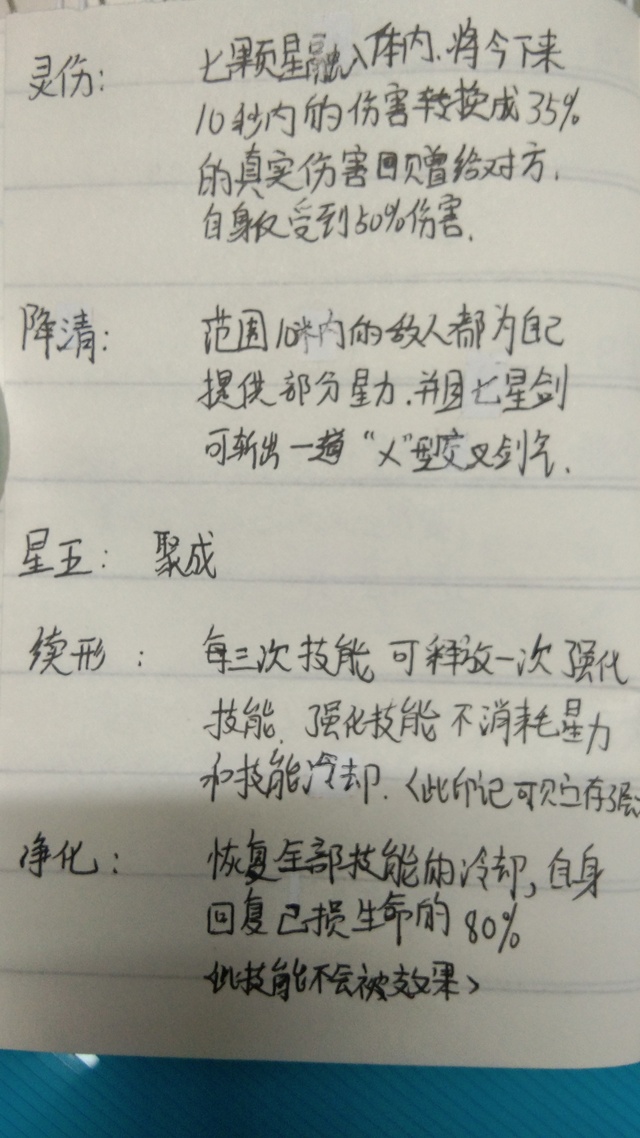 灵伤： 七颗星融入体内.将今下来
10秒内的伤害转换成35%
的真实伤害回赠给对方.
自身仅受到50%伤害.
降清： 范围10米内的敌人都为自己
提供部分星力.并且七星剑
可斩出一道“乂”型交叉剑气.
星五： 聚成
续形： 每三次技能可释放一次强化
技能.强化技能不消耗星力
和技能冷却.〈此印记可贮存3层
净化： 恢复全部技能的冷却,自身
回复已损生命的80%
〈此技能不会被效果〉